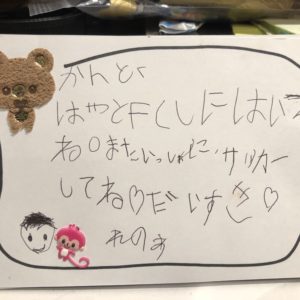 かんとく
はやとFCしにはい
ねOまたいっしょに、サッカー
してね♡だいすき♡
れのあ